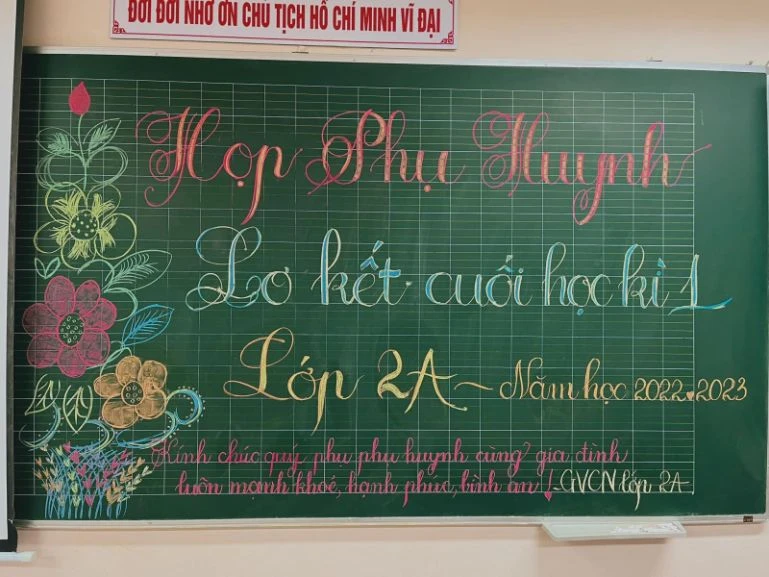 ĐỜI ĐỜI NHỚ ƠN CHỦ TỊCH HỒ CHÍ MINH VĨ ĐẠI
Họp Phụ Huynh
Sơ kết cuối học kì 1
Lớp 2A ~ Năm học 2022-2023
Kính chúc quý phụ phụ huynh cùng gia đình
luôn mạnh khoẻ, hạnh phúc, bình an! - GVCN lớp 2A